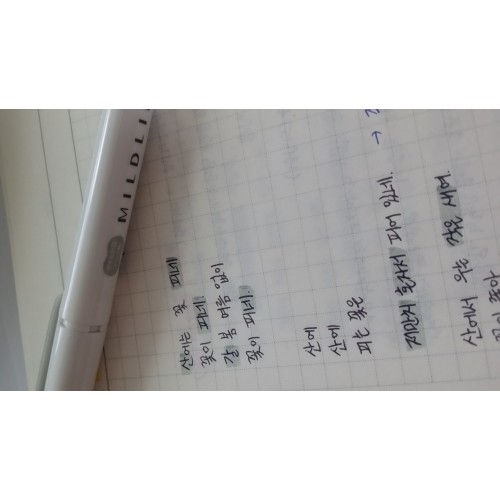 MILDLI
산에는 꽃 피네
꽃이 피네
갈 봄 여름 없이
꽃이 피네.
산에
산에
피는 꽃은
저만치 혼자서 피어 있네.
→ 
산에서 우는 작은 새여.
꽃이 좋아